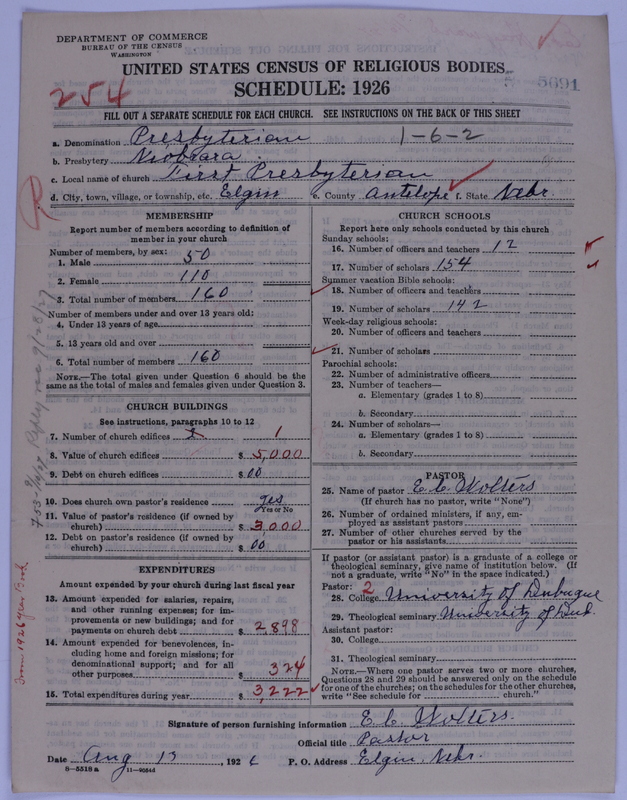 DEPARTMENT OF COMMERCE
BUREAU OF THE CENSUS
WASHINGTON
UNITED STATES CENSUS OF RELIGIOUS BODIES
5691
254
SCHEDULE: 1926
FILL OUT A SEPARATE SCHEDULE FOR EACH CHURCH. SEE INSTRUCTIONS ON THE BACK OF THIS SHEET
a. Denomination Presbyterian 1-6-2
b. Presbytery Niobrara
c. Local name of church First Presbyterian
d. City, town, village, or township, etc. Elgin e. County Antelope f. State Nebr.
MEMBERSHIP
Report number of members according to definition of
member in your church
Number of members, by sex:
1. Male 50
2. Female 110
3. Total number of members 160
Number of members under and over 13 years old:
4. Under 13 years of age
5. 13 years old and over
6. Total number of members 160
NOTE.—The total given under Question 6 should be the
same as the total of males and females given under Question 3.
CHURCH BUILDINGS
See instructions, paragraphs 10 to 12
7. Number of church edifices 1
8. Value of church edifices $ 5,000
9. Debt on church edifices $ 00
10. Does church own pastor's residence yes
Yes or No
11. Value of pastor's residence (if owned by
church) $ 3,000
12. Debt on pastor's residence (if owned by
church) $ 00
EXPENDITURES
Amount expended by your church during last fiscal year
13. Amount expended for salaries, repairs,
and other running expenses; for im-
provements or new buildings; and for
payments on church debt $ 2,898
14. Amount expended for benevolences, in-
cluding home and foreign missions; for
denominational support; and for all
other purposes $ 324
15. Total expenditures during year $ 3,222
CHURCH SCHOOLS
Report here only schools conducted by this church
Sunday schools:
16. Number of officers and teachers 12
17. Number of scholars 154
Summer vacation Bible schools:
18. Number of officers and teachers
19. Number of scholars 142
Week-day religious schools:
20. Number of officers and teachers
21. Number of scholars
Parochial schools:
22. Number of administrative officers
23. Number of teachers—
a. Elementary (grades 1 to 8)
b. Secondary
24. Number of scholars—
a. Elementary (grades 1 to 8)
b. Secondary
PASTOR
25. Name of pastor E. C. Wolters
(If church has no pastor, write "None")
26. Number of ordained ministers, if any, em-
ployed as assistant pastors
27. Number of other churches served by the
pastor or his assistants
If pastor (or assistant pastor) is a graduate of a college or
theological seminary, give name of institution below. (If
not a graduate, write "No" in the space indicated.)
Pastor: 2
28. College University of Dubuque
29. Theological seminary University of Dub.
Assistant pastor:
30. College
31. Theological seminary
NOTE.—Where one pastor serves two or more churches,
Questions 28 and 29 should be answered only on the schedule
for one of the churches; on the schedules for the other churches,
write "See schedule for church."
Signature of person furnishing information E. C. Wolters.
Official title Pastor
Date Aug 13, 1926 P. O. Address Elgin, Nebr.
8-5518 a
From 1926 year Book